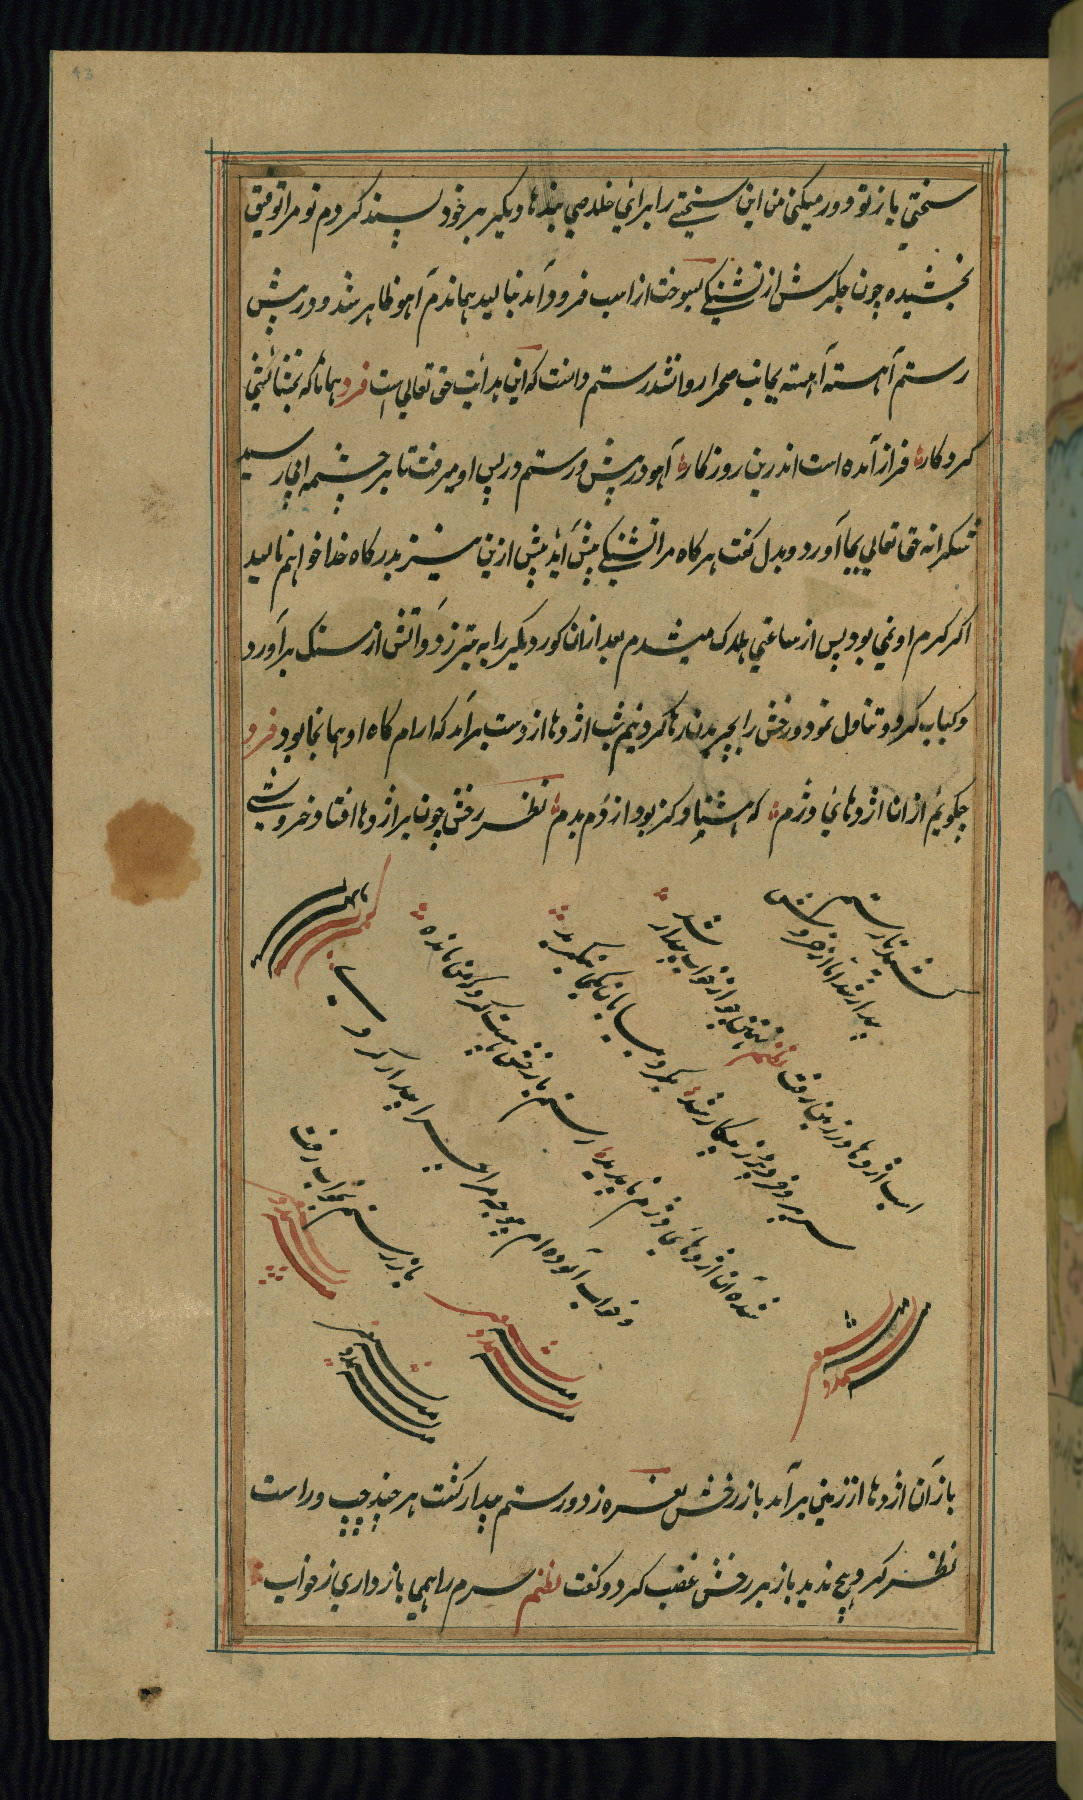 43
سختی باز تو دور میکنی من این سختی را برای خلاصی بندها دیگر بر خود پسند کردم تو مرا توفیق
بخشیده چون جگرش از تشنگی بسوخت از اسب فرود آمد بنالید هماندم آهو ظاهر شد و در پیش
رستم آهسته آهسته بجانب صحرا روانشد رستم دانست که این هدایت حق تعالی است فرد همانا که بخشائشی
کردکار فراز آمده است اندرین روزکار آهو در پیش و رستم در پس او میرفت تا بر چشمه آبی رسید
شکرانه حق تعالی بجا آورد و بدل گفت هرکاه مرا تشنگی پیش آید پیش ازین نیز بدرکاه خدا خواهم نالید
اکر کرم او نمی بود پس از ساعتی هلاک میشدم بعد ازان کور دیگر را به تیر زد و آتش از سنک برآورد
و کباب کرد و تناول نمود و رخش را بچریدن رها کرد نیم شب اژدها از دست برآمد که ارام کاه او همانجا بود فرد
چکویم ازان اژدهای دژم که هشتاد کز بود از دم بدم نظر رخش چون بر اژدها افتاد خروشی
کشید تا رستم
بیدار شد اما از خروش
اسب اژدها در زمین رفت نظم تهمتن چو از خواب بیدار شد
سر پر خرد پر ز پیکار شد بکرد بیابان یکی بنگرید
شد آن اژدهای دژم ناپدید رستم با رخش
و خواب آلوده ام چو چه مرا بیدار کرد
باز رستم بخواب رفت
باز آن اژدها از زمین برآمد باز رخش نعره زد و رستم بیدار گشت هر چند چپ و راست
نظر کرد هیچ ندید باز بر رخش غضب کرد و گفت نظم سرم را همی بازداری ز خواب